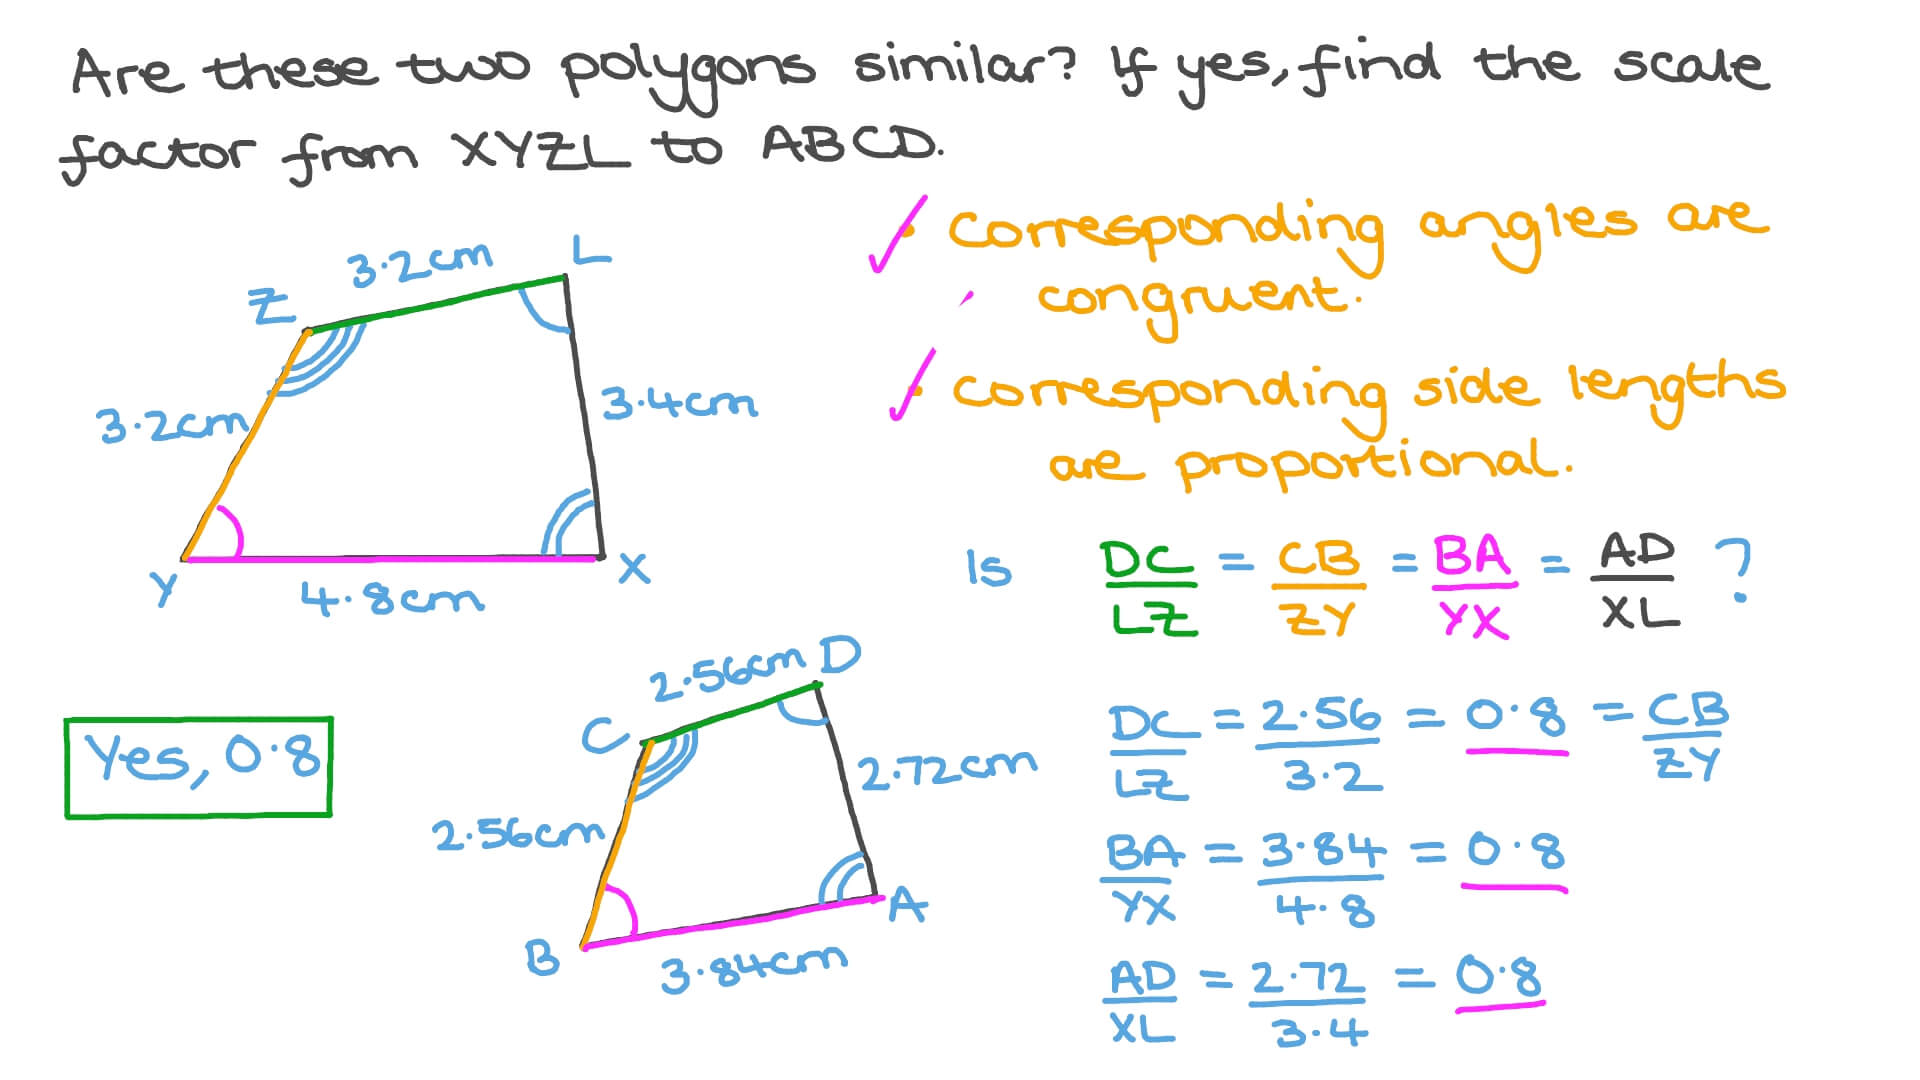 Are these two polygons similar? If yes, find the scale
factor from XYZL to ABCD.
• corresponding angles are
congruent.
• corresponding side lengths
are proportional.
3.2cm
L
Z
3.2cm
3.4cm
Y
4.8cm
X
Is DC/LZ = CB/ZY = BA/YX = AD/XL ?
2.56cm
D
C
2.72cm
2.56cm
A
B
3.84cm
Yes, 0.8
DC/LZ = 2.56/3.2 = 0.8 = CB/ZY
BA/YX = 3.84/4.8 = 0.8
AD/XL = 2.72/3.4 = 0.8